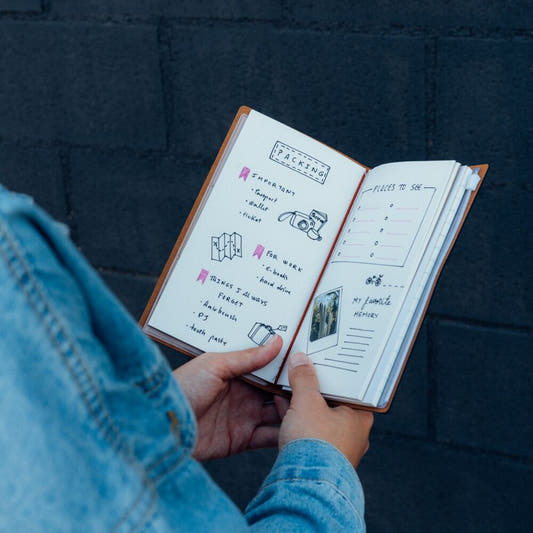 PACKING
IMPORTANT
· Passport
· Wallet
· ticket
FOR WORK
· e-books
· hard drive
THINGS I ALWAYS
FORGET
· Hairbrush
· PJ
· tooth paste
PLACES TO SEE
MY favorite
MEMORY